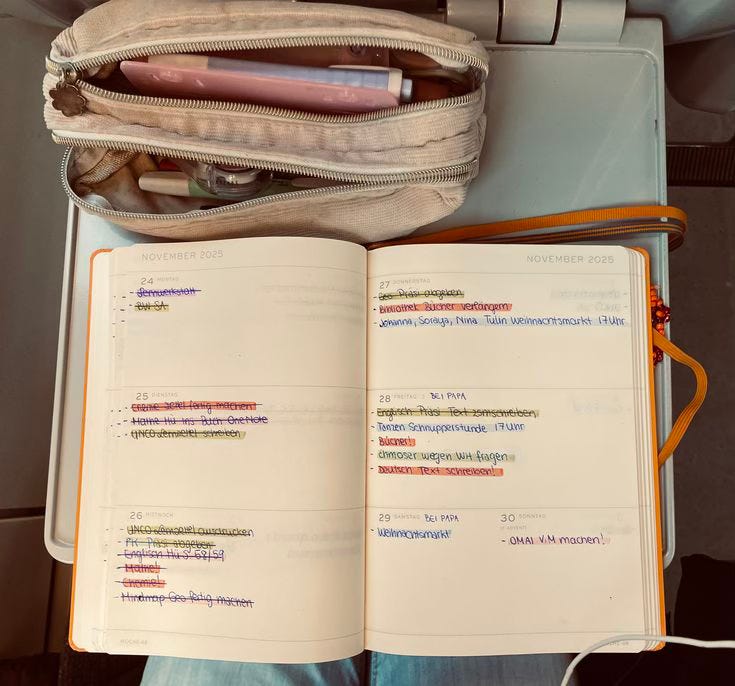 NOVEMBER 2025
24 MONTAG
- Lernwerkstatt
- BW SA
25 DIENSTAG
- Chemie Zettel fertig machen!
- Mathe Hü ins Buch OneNote
- UNCO Lernzettel schreiben
26 MITTWOCH
- UNCO Lernzettel ausdrucken
- PK Präsi abgeben
- Englisch Hü S. 58/59
- Mathe!
- Chemie!
- Mindmap Geo fertig machen
WOCHE 48
NOVEMBER 2025
27 DONNERSTAG
- Geo Präsi abgeben
- Bibliothek Bücher verlängern
- Johanna, Soraya, Nina Tulin Weihnachtsmarkt 17 Uhr
28 FREITAG BEI PAPA
- Englisch Präsi Text zsmschreiben
- Tanzen Schnupperstunde 17 Uhr
- Bücher!
- Chmoser wegen WH fragen
- Deutsch Text schreiben!
29 SAMSTAG BEI PAPA
- Weihnachtsmarkt!
30 SONNTAG
1. ADVENT
- OMAI VIM machen!
WOCHE 48